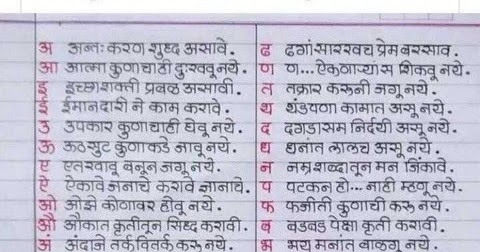 अ अन्तः करण शुध्द असावे.
आ आत्मा कुणाचाही दुःखवू नये.
इ इच्छाशक्ती प्रबळ असावी.
ई ईमानदारी ने काम करावे.
उ उपकार कुणाचाही घेवू नये.
ऊ ऊठसुट कुणाकडे जावू नये.
ए एतखावू बनून जगू नये.
ऐ ऐकावे जनाचे करावे ज्ञानावे.
ओ ओझे कोणावर होवू नये.
औ औकात कृतीतून सिध्द करावी.
अं अंदाजे तर्कवितर्क करू नये.
ढ ढगांसारखच प्रेम बरसाव.
ण ण... ऐकणाऱ्यांस शिकवू नये.
त तक्रार करूनी जगू नये.
थ थंडपणा कामात असू नये.
द दगडासम निर्दयी असू नये.
ध धनांत लालच असू नये.
न नम्रशब्दातून मन जिंकावे.
प पटकन हो... नाही म्हणू नये.
फ फजीती कुणाची करू नये.
ब बडबड पेक्षा कृती करावी.
भ भय मनांत बाळगू नये.